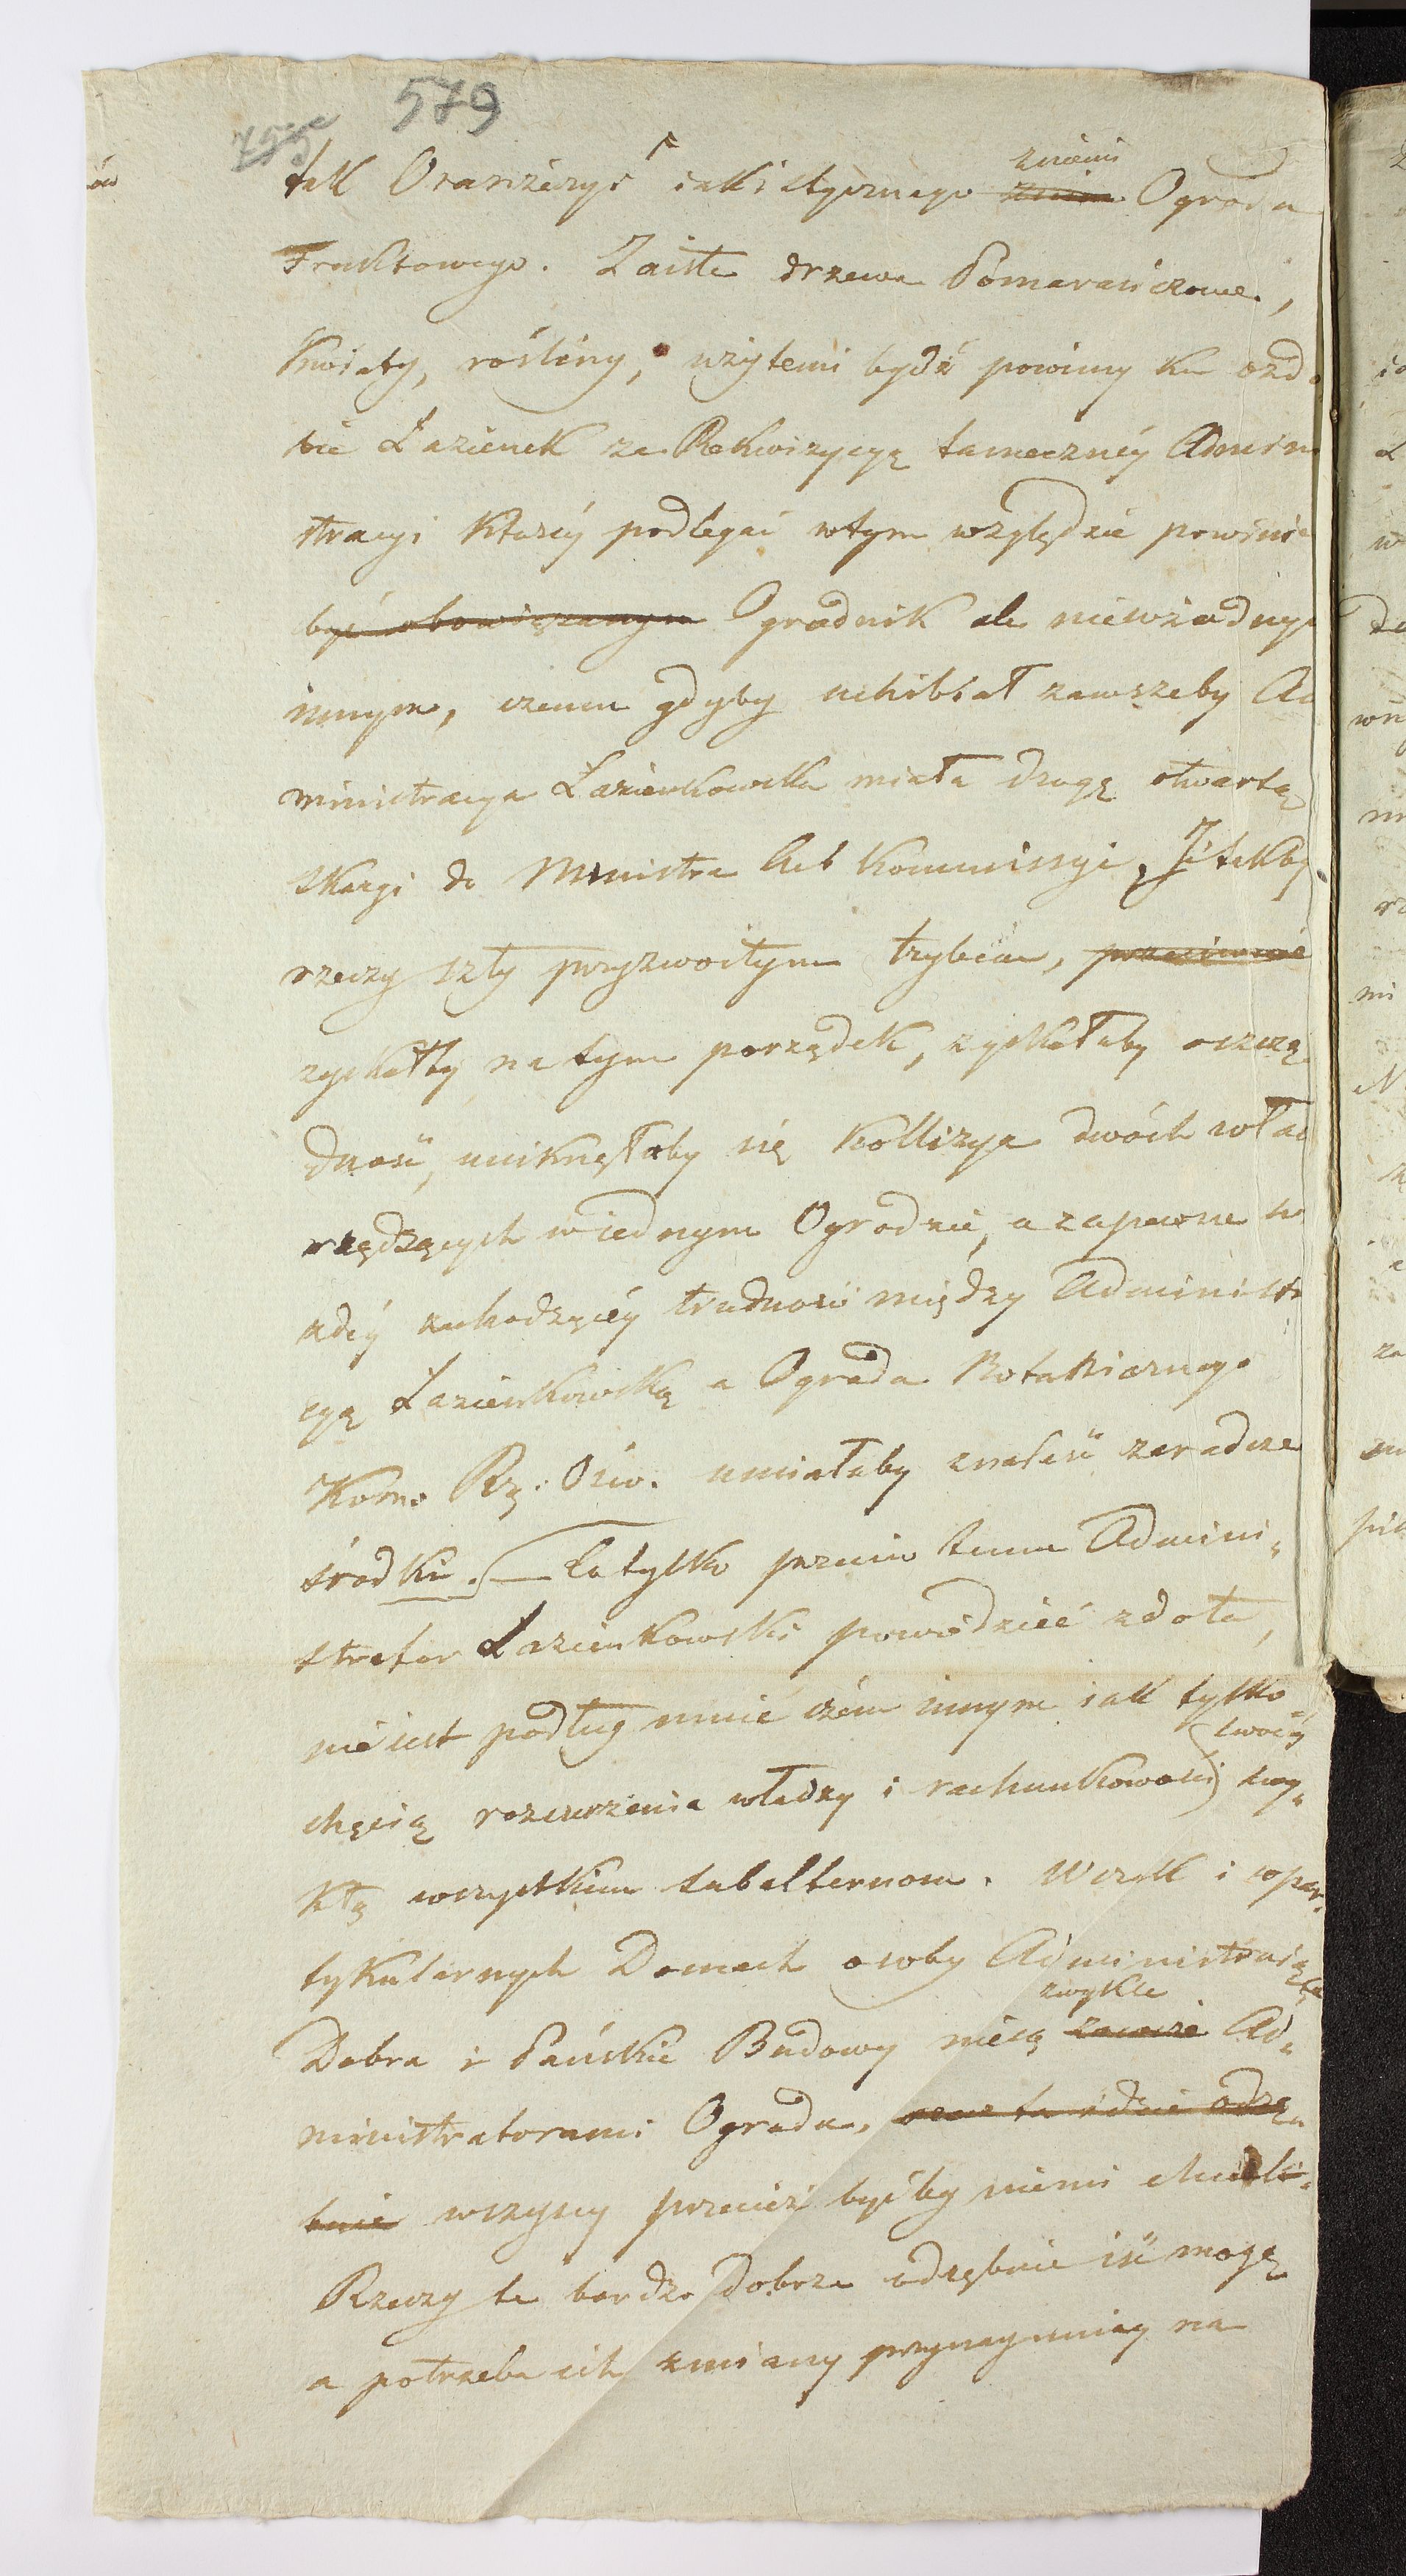 579
tak Oranżeryi iak i stycznego zniemi Ogrodu
Fruktowego. Zaiste drzewa Pomarańczowe,
Kwiaty, rośliny, użytemi bydź powinny ku ozdo
bie Łazienek za Rekwizycyą tameczney Admini
stracyi Którey podlegać wtym względzie powinie
być obowiązanym Ogrodnik ale niewżadnym
innym, czemu gdyby uchibiał zawszeby Ad
ministracya Łazienkowska miała drogę otwartą
skargi do Ministra lub Kommissyi, I takby
rzeczy szły przyzwoitym trybem, przeciwnie
zyskałby natym porządek, zyskałaby oszczę
dność, uniknęłaby się Kollizya dwóch wład
rządzących wiednym Ogrodzie, a zapewne w
zachodzącéy trudności między Administra
cyą Łazienkowską a Ogrodu Botanicznego
Kom. Rz: Ośw. umiałaby znaleść zaradcze
środki. Co tylko przeciw temu Admini„
strator Łazienkowski powiedzieć zdoła,
nie iest podług mnie czém innym iak tylko
chęcią rozszerzenia władzy i rachunkowości) swoiéy zwy„
kłą wszystkim subalternom. Wszak i wpar„
tykularnych Domach osoby Administruiące
Dobra i Pańskie Budowy niesą zawsze zwykle Ad„
ministratorami Ogrodu, oraz ta idzie odrę„
bnie wszyscy przecież byćby niemi chcieli.
Rzeczy te bardzo dobrze odrębnie iść mogą
a potrzeba ich zmiany przynaymniey na